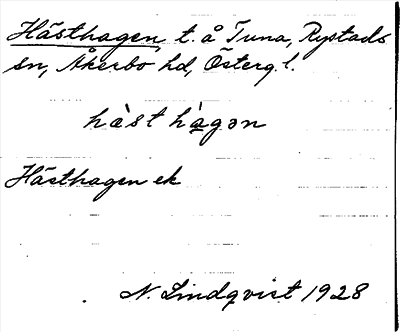 Hästhagen, t. å Tuna, Rystads
sn, Åkerbo hd, Österg. l.
hàst hàgən
Hästhagen ek
N. Lindqvist 1928